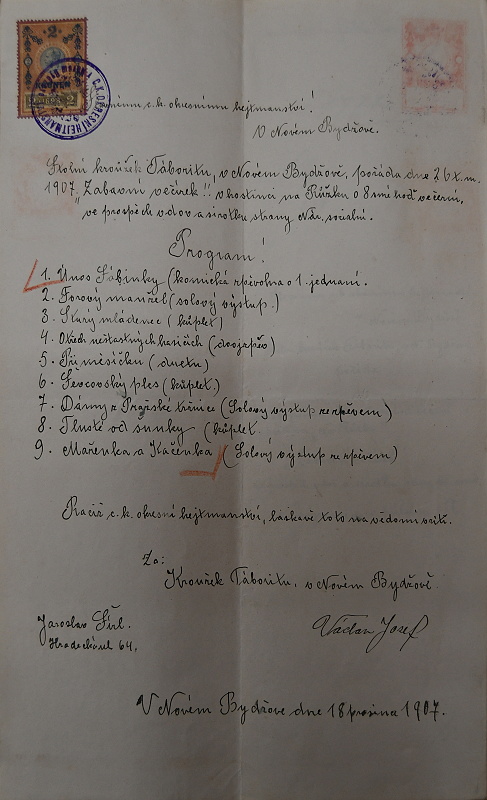 2
C.K. OKRESNÍ HEJTMAN
c. k. okresnímu hejtmanství!
V Novém Bydžově.
Stolní kroužek Táboritů, v Novém Bydžově, pořádá dne 26 t. m.
1907. „Zábavní večírek!! v hostinci na Růžku o 8 mé hod večerní,
ve prospěch vdov a sirotků strany Nár. sociální.
Program!
1. Únos Sábinky (komická zpěvohra o 1. jednání.
2. Forový manžel (solový výstup.)
3. Starý mládenec (kůplet)
4. O těch nešťastných hasičích (dvojzpěv)
5. Při měsíčku (duetu)
6. Ševcovský ples (kůplet.)
7. Dámy z Pražské tržnice (Solový výstup ze zpěvem)
8. Tlustí od sumky (kůplet.
9. Mařenka a Káčenka (Solový výstup ze zpěvem)
Račiž c. k. okresní hejtmanství, láskavě toto na vědomí vzíti.
Za:
Kroužek Táboritů, v Novém Bydžově
Jaroslav
64.
Václav Josef
V Novém Bydžově dne 18 prosince 1907.